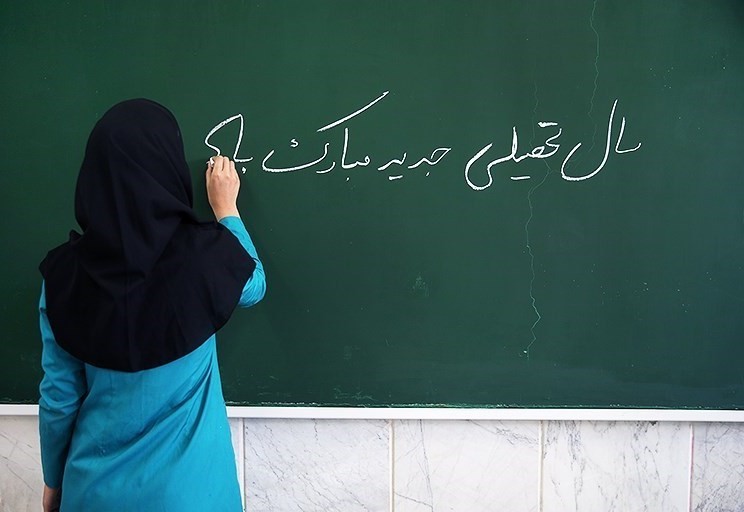 سال تحصیلی جدید مبارک با